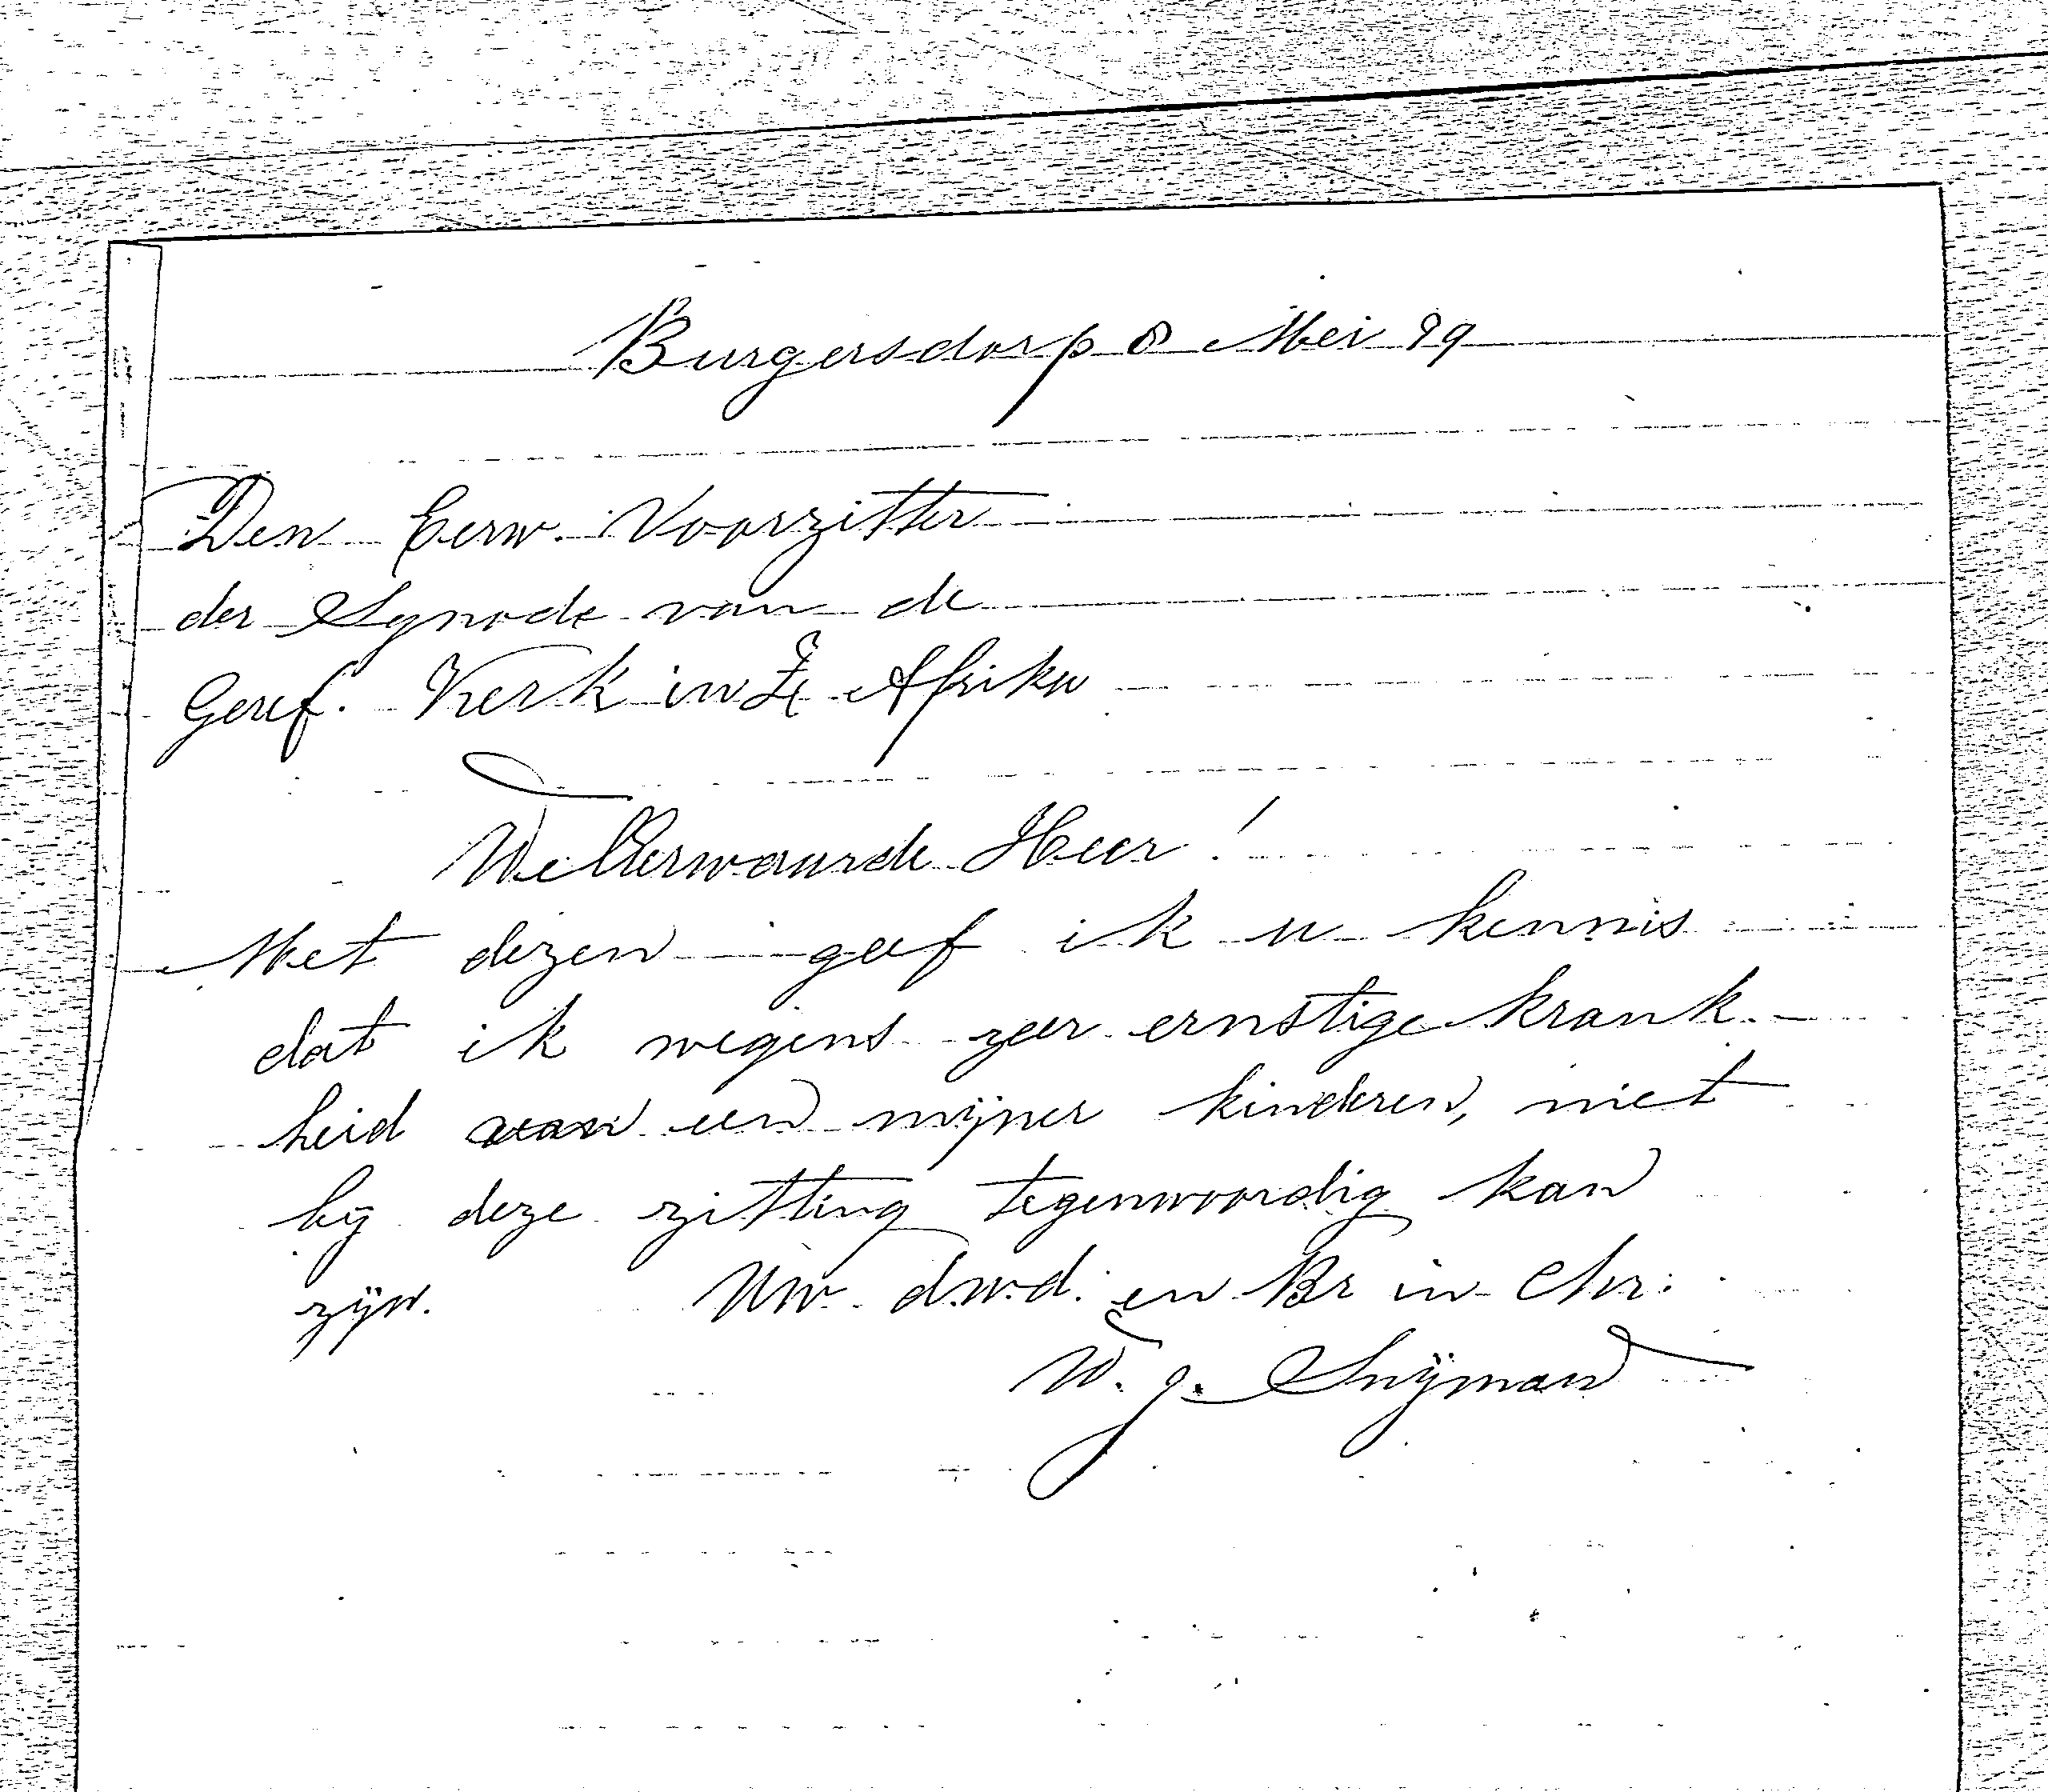 Burgersdorp 8 Mei 99
Den Eerw. Voorzitter
der Synode van de
Geref. Kerk in Z. Afrika
WelEerwaarde Heer!
Met dezen geef ik u kennis
dat ik wegens zeer ernstige krank
heid van een mijner kinderen, niet
bij deze zitting tegenwoordig kan
zijn. Uw dwd. en Br in Chr:
W. J. Snijman